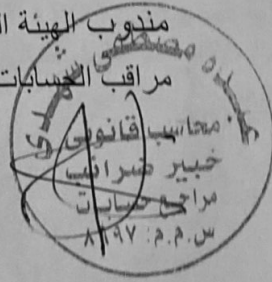 مندوب الهيئة
مراقب الحسابات
عبده مصطفى
محاسب قانوني
خبير ضرائب
مراجع حسابات
س.م.م: ٨١٩٧